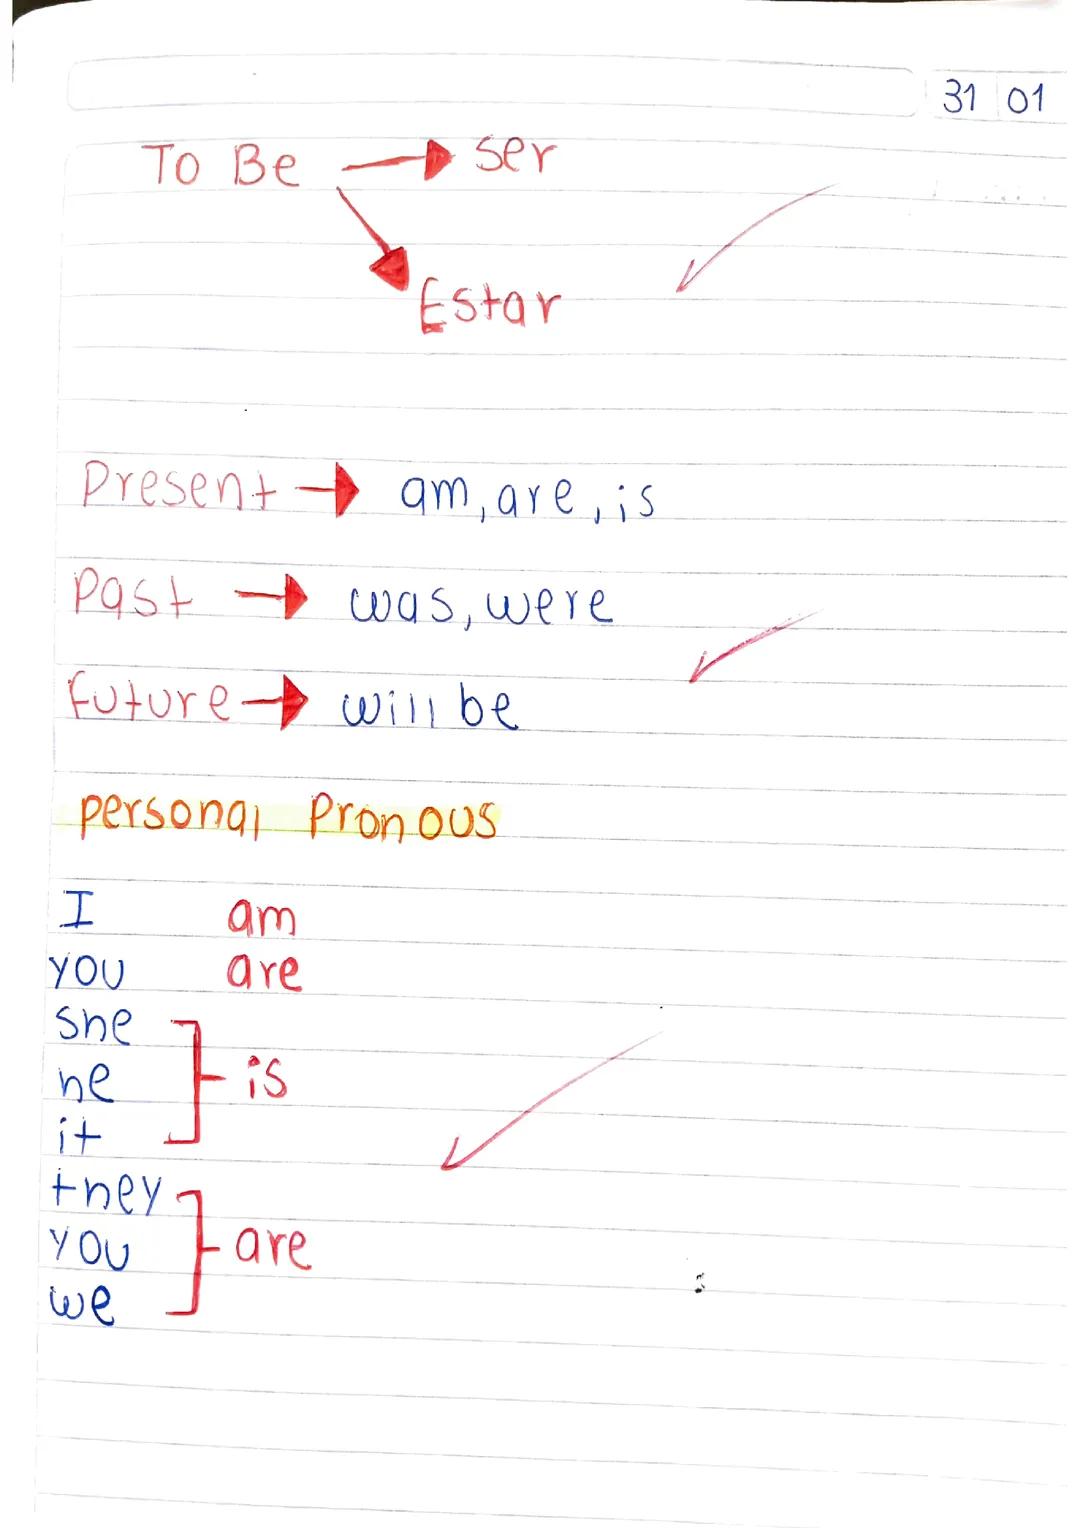 31 01
To Be → ser
Estar
Present → am, are, is
Past → was, were
future → will be
personal Pronous
I am
you are
she
he is
it
they
you are
we